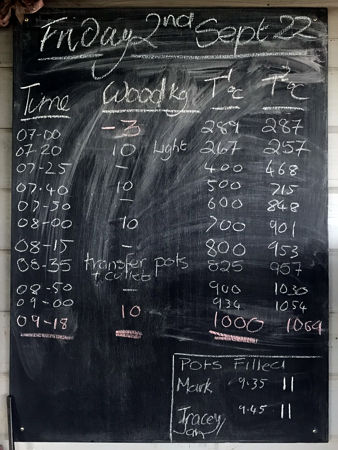 Friday 2nd Sept 22
Time Wood kg T1 °C T2 °C
07-00 -3 289 287
07-20 10 Light 267 257
07-25 - 400 468
07-40 10 500 715
07-50 - 600 848
08-00 10 700 901
08-15 - 800 953
08-35 transfer pots 825 957
08-50 - 900 1030
09-00 934 1054
09-18 10 1000 1064
Pots Filled
Mark 9.35 11
Tracey 9.45 11
Jan